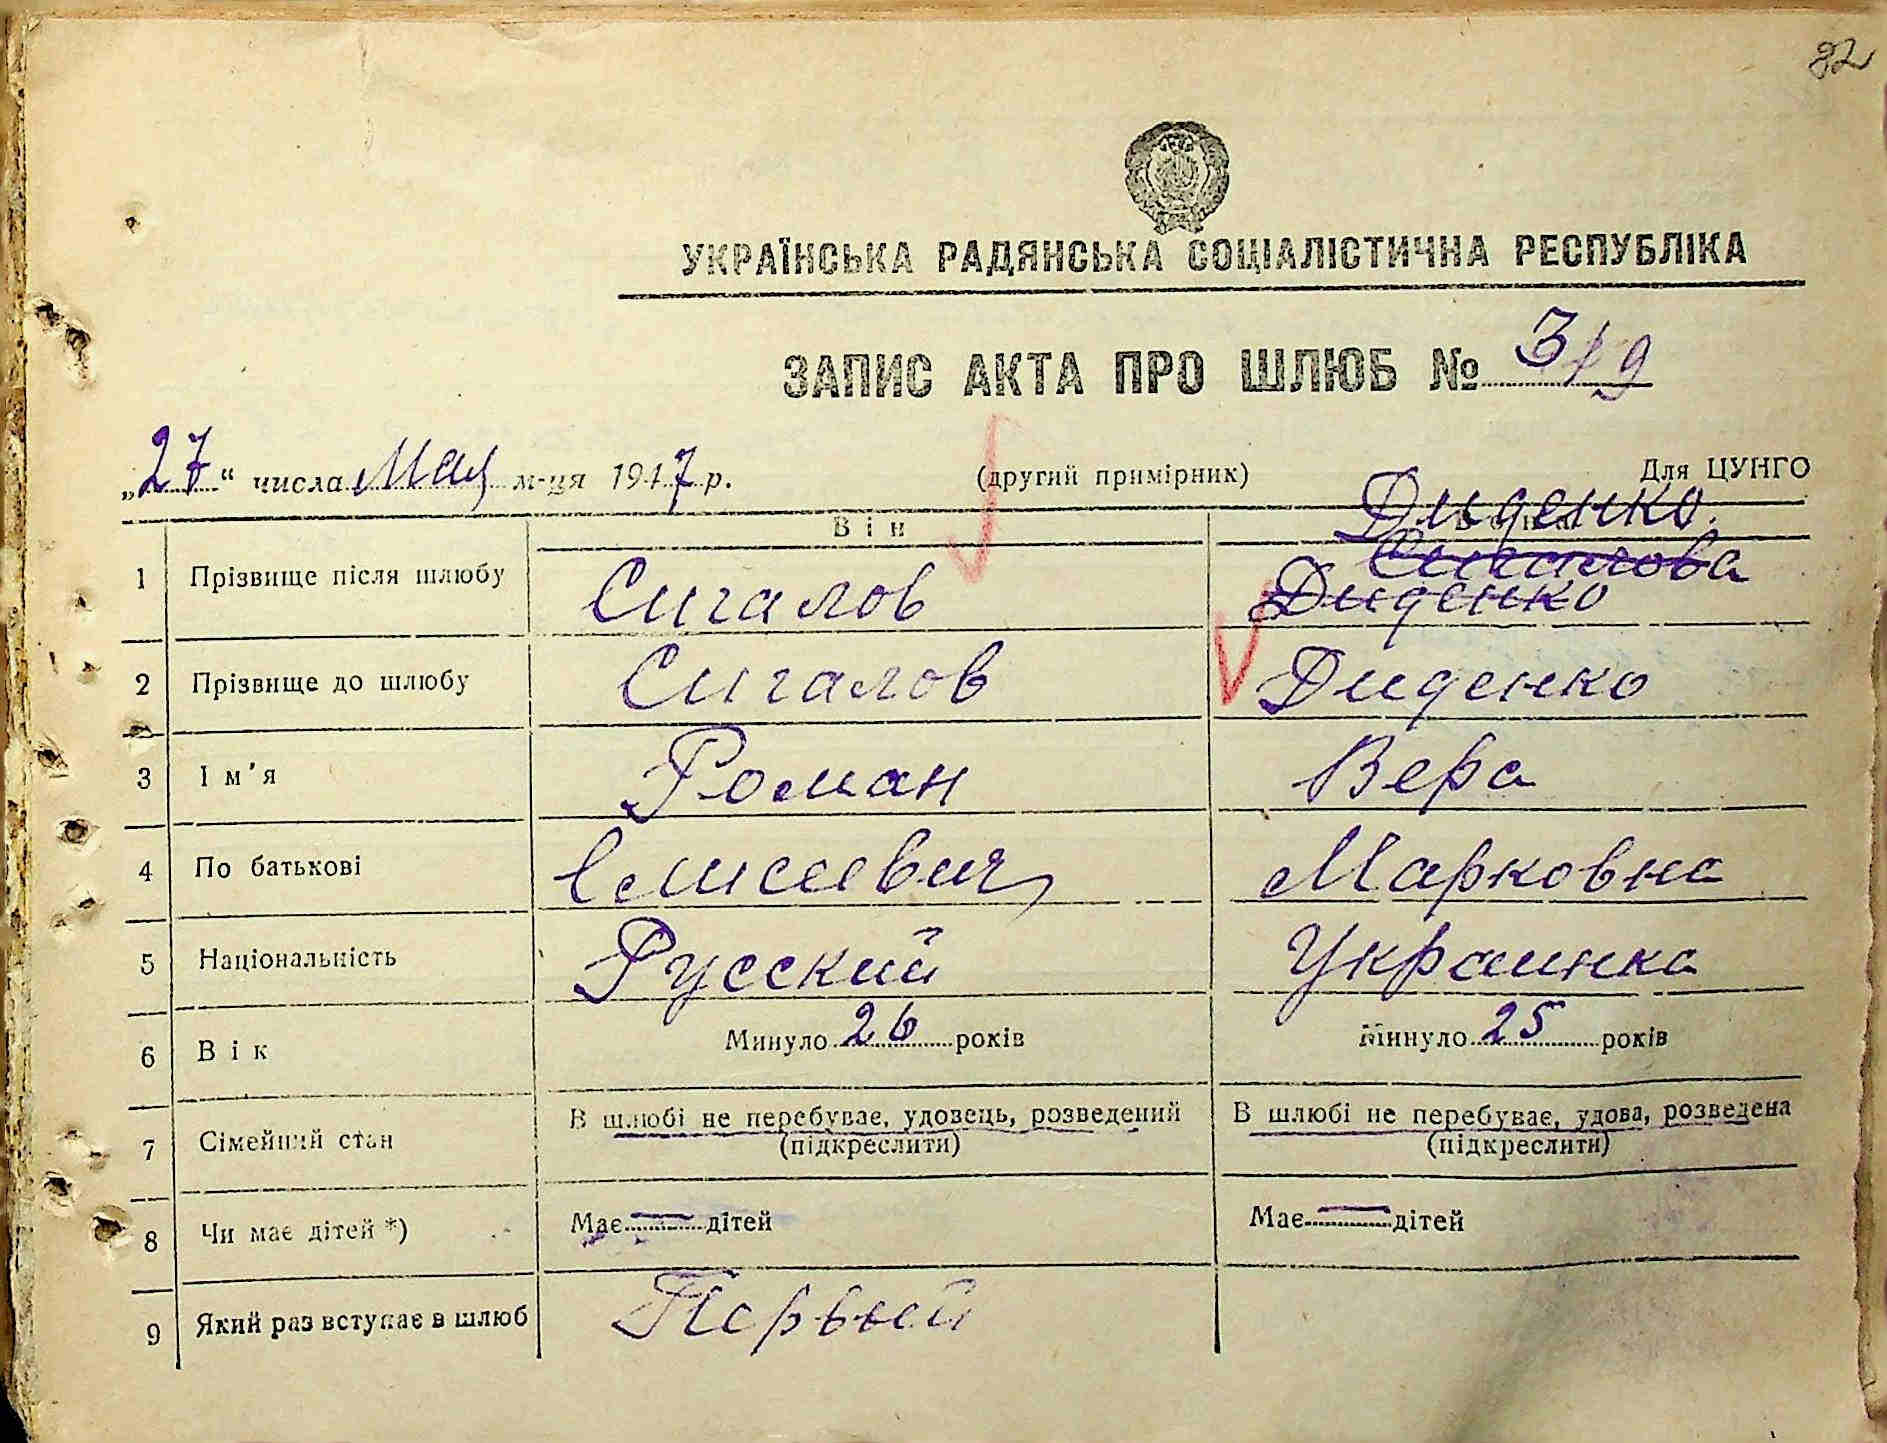 82
УКРАЇНСЬКА РАДЯНСЬКА СОЦІАЛІСТИЧНА РЕСПУБЛІКА
ЗАПИС АКТА ПРО ШЛЮБ № 319
„27“ числа Мая м-ця 1947 р. (другий примірник) Для ЦУНГО
Він Вона Диденко
Сигалова
1 Прізвище після шлюбу Сигалов Диденко
2 Прізвище до шлюбу Сигалов Диденко
3 Ім'я Роман Вера
4 По батькові Елисеевич Марковна
5 Національність Русский Украинка
6 Вік Минуло 26 років Минуло 25 років
7 Сімейний стан В шлюбі не перебуває, удовець, розведений В шлюбі не перебуває, удова, розведена
(підкреслити) (підкреслити)
8 Чи має дітей *) Має — дітей Має — дітей
9 Який раз вступає в шлюб Первый